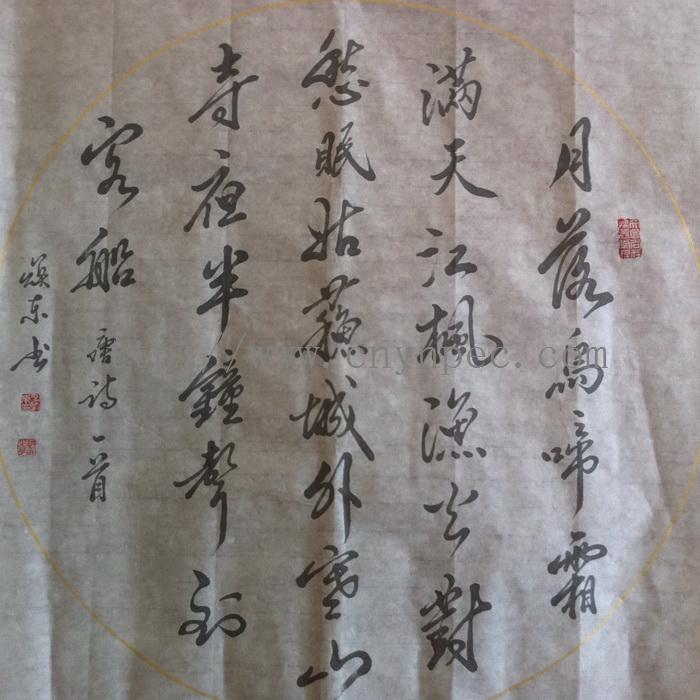 月落烏啼霜
滿天江楓漁火對
愁眠姑蘇城外寒山
寺夜半鐘聲到
客船
唐詩一首
東书